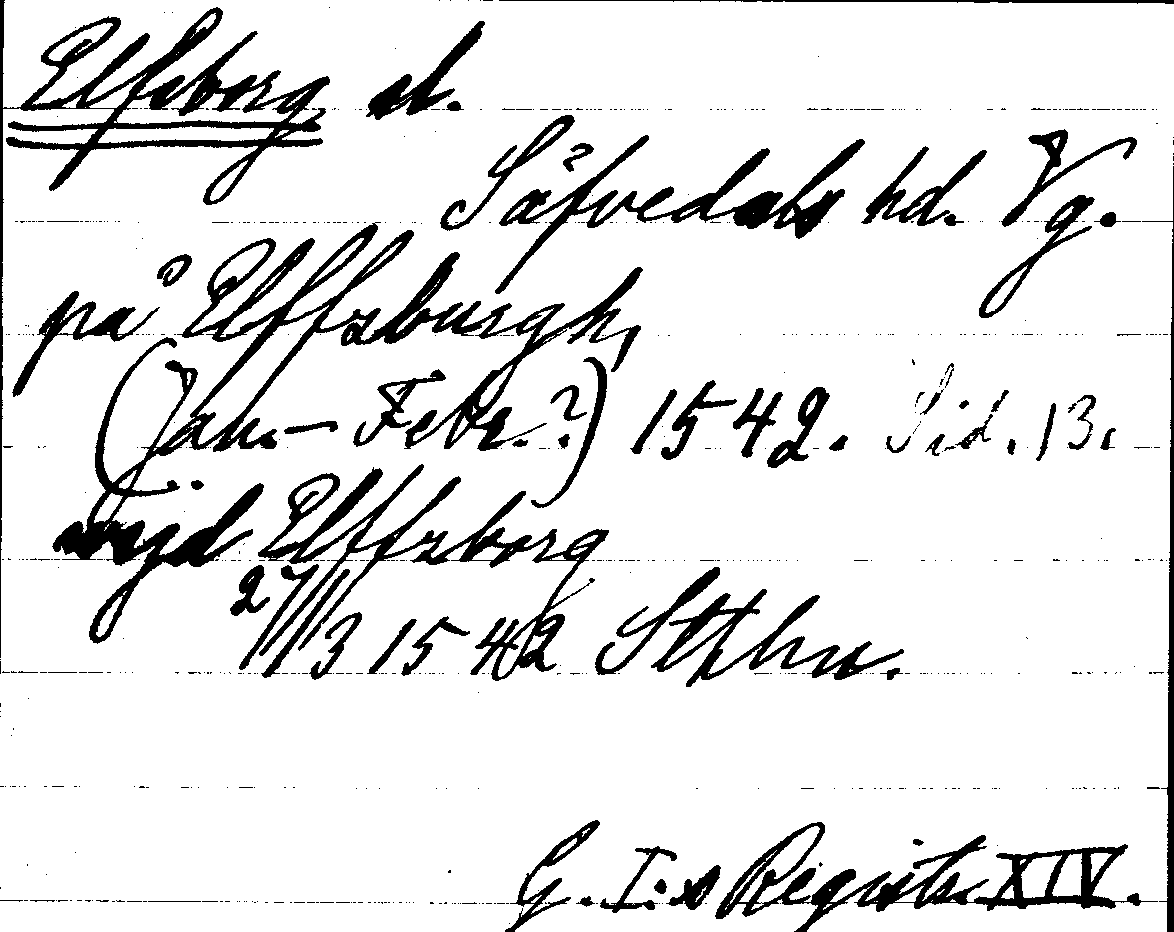 Elfsborg sl.
Säfvedals hd. Vg.
på Elffzburgh,
(Jan.–Febr.?) 1542. Sid. 13.
wijd Elffzborg
27/3 1542 Sthlm.
G. I:s Registr. XIV.